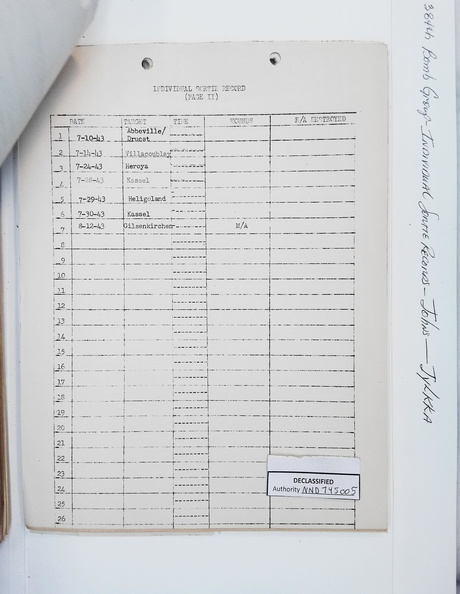 INDIVIDUAL SORTIE RECORD
(PAGE II)
DATE TARGET TIME WOUNDS E/A DESTROYED
1 7-10-43 Abbeville/
Drucat
2 7-14-43 Villacoublay
3 7-24-43 Heroya
4 7-28-43 Kassel
5 7-29-43 Heligoland
6 7-30-43 Kassel
7 8-12-43 Gilsenkirchen M/A
8
9
10
11
12
13
14
15
16
17
18
19
20
21
22
23
24
25
26
DECLASSIFIED
Authority NND 745005
384th Bomb Group - Individual Sortie Records - Johns - Jylkka